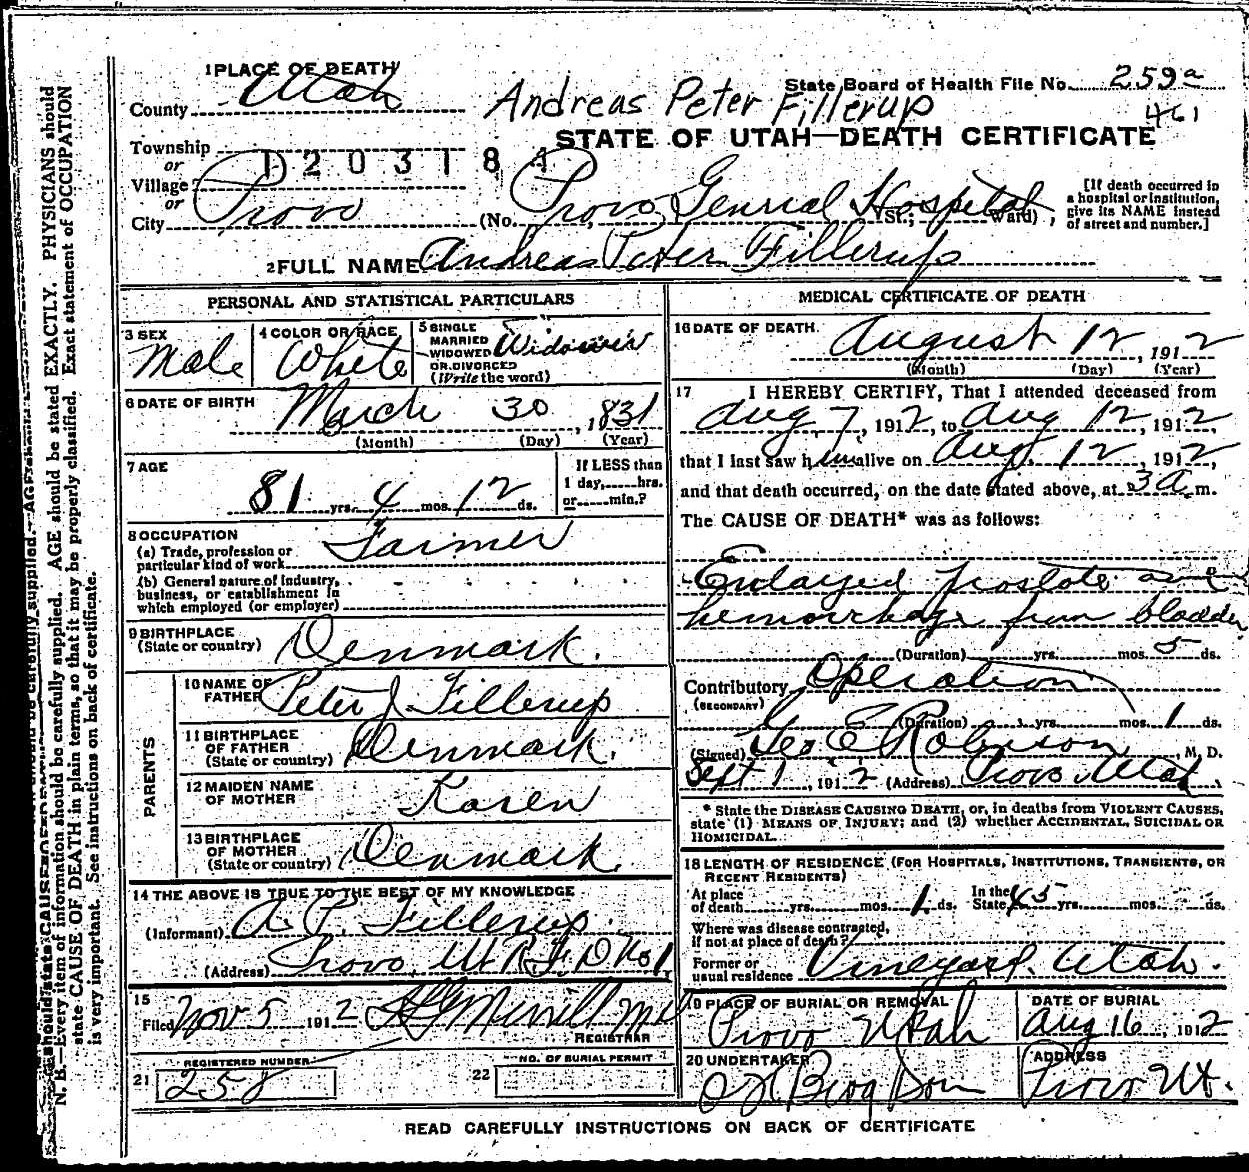 1 PLACE OF DEATH
County Utah
Andreas Peter Fillerup
State Board of Health File No. 259a
461
STATE OF UTAH—DEATH CERTIFICATE
Township
or
1203184
Village
or
City Provo (No. Provo General Hospital St.; Ward)
[If death occurred in
a hospital or institution,
give its NAME instead
of street and number.]
2 FULL NAME Andreas Peter Fillerup
PERSONAL AND STATISTICAL PARTICULARS
3 SEX
Male
4 COLOR OR RACE
White
5 SINGLE
MARRIED
WIDOWED
OR DIVORCED
(Write the word)
Widower
6 DATE OF BIRTH
March 30, 1831
(Month) (Day) (Year)
7 AGE
81 yrs. 4 mos. 12 ds.
If LESS than
1 day, hrs.
or min.?
8 OCCUPATION
(a) Trade, profession or
particular kind of work Farmer
(b) General nature of industry,
business, or establishment in
which employed (or employer)
9 BIRTHPLACE
(State or country) Denmark.
PARENTS
10 NAME OF
FATHER Peter J Fillerup
11 BIRTHPLACE
OF FATHER
(State or country) Denmark.
12 MAIDEN NAME
OF MOTHER Karen
13 BIRTHPLACE
OF MOTHER
(State or country) Denmark.
14 THE ABOVE IS TRUE TO THE BEST OF MY KNOWLEDGE
(Informant) A. P. Fillerup.
(Address) Provo, Ut R.F.D No 1
15
Filed Nov 5 1912
Merrill
REGISTRAR
REGISTERED NUMBER
21 258
NO. OF BURIAL PERMIT
22
MEDICAL CERTIFICATE OF DEATH
16 DATE OF DEATH.
August 12, 1912
(Month) (Day) (Year)
17 I HEREBY CERTIFY, That I attended deceased from
Aug 7, 1912, to Aug 12, 1912
that I last saw him alive on Aug. 12, 1912,
and that death occurred, on the date stated above, at 3 a.m.
The CAUSE OF DEATH* was as follows:
Enlarged prostate and
hemorrhage from bladder
(Duration) yrs. mos. 5 ds.
Contributory Operation
(SECONDARY)
(Duration) yrs. mos. 1 ds.
(Signed) Geo E Robinson, M. D.
Sept 1, 1912 (Address) Provo Utah
* State the DISEASE CAUSING DEATH, or, in deaths from VIOLENT CAUSES,
state (1) MEANS OF INJURY; and (2) whether ACCIDENTAL, SUICIDAL OR
HOMICIDAL.
18 LENGTH OF RESIDENCE (FOR HOSPITALS, INSTITUTIONS, TRANSIENTS, OR
RECENT RESIDENTS)
At place
of death yrs. mos. 1 ds.
In the
State 45 yrs. mos. ds.
Where was disease contracted,
if not at place of death?
Former or
usual residence Vineyard. Utah.
19 PLACE OF BURIAL OR REMOVAL
Provo Utah
DATE OF BURIAL
Aug 16, 1912
20 UNDERTAKER
ADDRESS
Provo Ut.
READ CAREFULLY INSTRUCTIONS ON BACK OF CERTIFICATE
N. B.—Every item of information should be carefully supplied. AGE should be stated EXACTLY. PHYSICIANS should
state CAUSE OF DEATH in plain terms, so that it may be properly classified. Exact statement of OCCUPATION
is very important. See instructions on back of certificate.